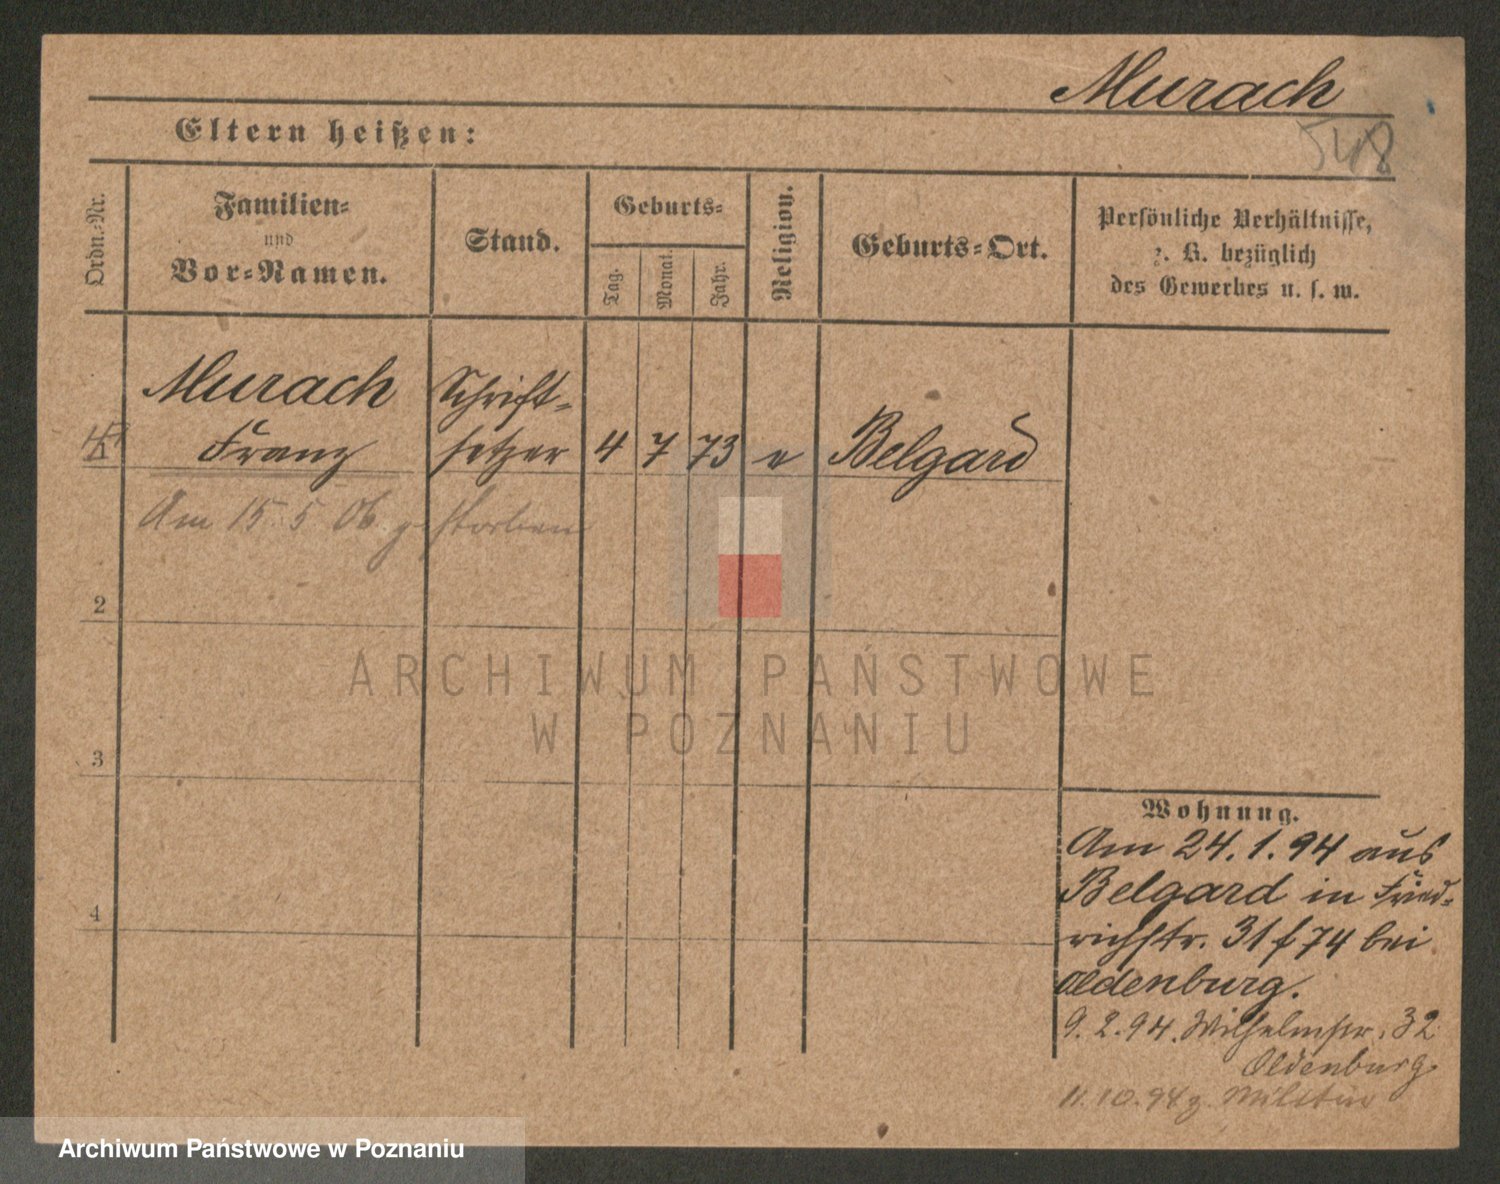 Murach
548
Eltern heißen:
Ordn.-Nr.
Familien-
und
Vor-Namen.
Stand.
Geburts-
Tag.
Monat.
Jahr.
Religion.
Geburts-Ort.
Persönliche Verhältnisse,
z. B. bezüglich
des Gewerbes u. s. w.
Murach
Franz
Schrift-
setzer
4 7 73 e Belgard
Am 15. 5 06 gestorben
2
3
4
ARCHIWUM PAŃSTWOWE
W POZNANIU
Wohnung.
Am 24. 1. 94 aus
Belgard in Fried-
richstr. 31 f 74 bei
Oldenburg.
9. 2. 94. Wilhelmstr. 32
Oldenburg
11. 10. 94 z. Militär
Archiwum Państwowe w Poznaniu